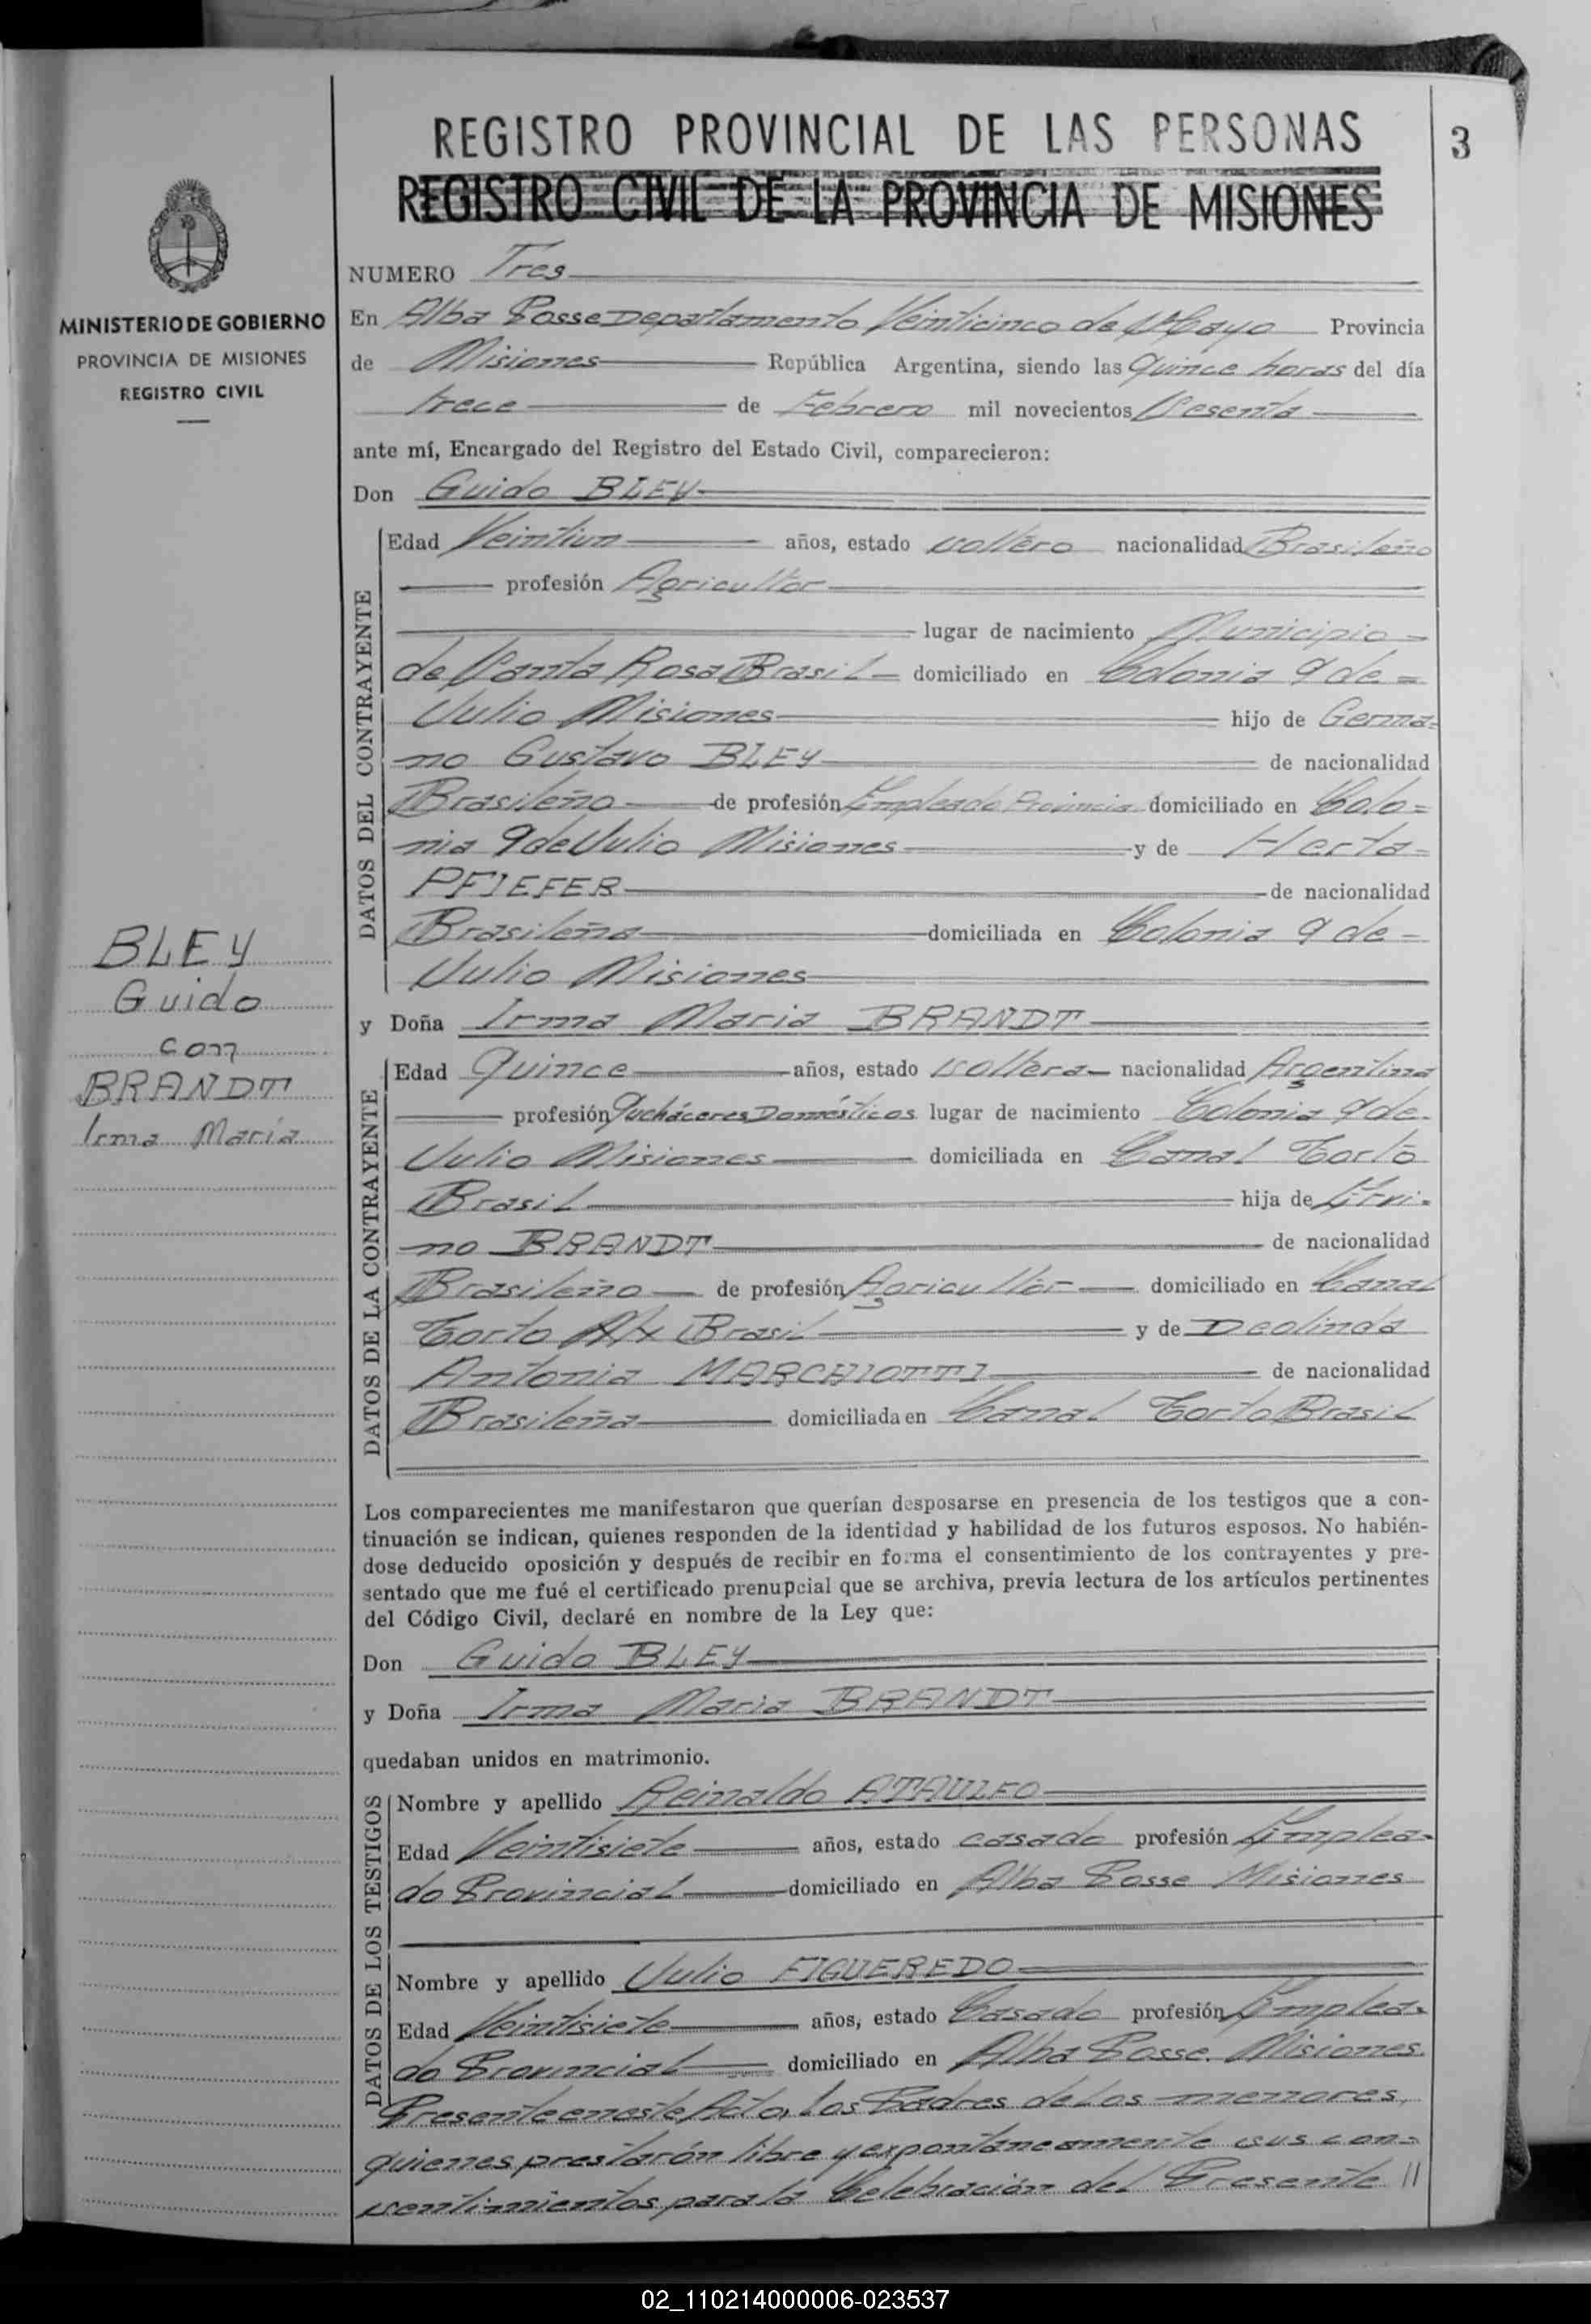 REGISTRO PROVINCIAL DE LAS PERSONAS
3
REGISTRO CIVIL DE LA PROVINCIA DE MISIONES
MINISTERIO DE GOBIERNO
PROVINCIA DE MISIONES
REGISTRO CIVIL
BLEY
Guido
con
BRANDT
Irma María
NUMERO Tres
En Alba Posse Departamento Veinticinco de Mayo Provincia
de Misiones República Argentina, siendo las Quince horas del día
trece de Febrero mil novecientos Sesenta
ante mí, Encargado del Registro del Estado Civil, comparecieron:
Don Guido BLEY
DATOS DEL CONTRAYENTE
Edad Veintiun años, estado soltero nacionalidad Brasileño
profesión Agricultor
lugar de nacimiento Municipio
de Santa Rosa Brasil domiciliado en Colonia 9 de =
Julio Misiones hijo de Germa=
no Gustavo BLEY de nacionalidad
Brasileño de profesión Empleado Provincia domiciliado en Colo=
nia 9 de Julio Misiones y de Herta
PFIEFER de nacionalidad
Brasileña domiciliada en Colonia 9 de -
Julio Misiones
y Doña Irma Maria BRANDT
DATOS DE LA CONTRAYENTE
Edad Quince años, estado soltera nacionalidad Argentina
profesión Quehaceres Domésticos lugar de nacimiento Colonia 9 de
Julio Misiones domiciliada en Canal Torto
Brasil hija de Ervi=
no BRANDT de nacionalidad
Brasileño de profesión Agricultor domiciliado en Canal
Torto Brasil y de Deolinda
Antonia MARCHIOTTI de nacionalidad
Brasileña domiciliada en Canal Torto Brasil
Los comparecientes me manifestaron que querían desposarse en presencia de los testigos que a con-
tinuación se indican, quienes responden de la identidad y habilidad de los futuros esposos. No habién-
dose deducido oposición y después de recibir en forma el consentimiento de los contrayentes y pre-
sentado que me fué el certificado prenupcial que se archiva, previa lectura de los artículos pertinentes
del Código Civil, declaré en nombre de la Ley que:
Don Guido BLEY
y Doña Irma Maria BRANDT
quedaban unidos en matrimonio.
DATOS DE LOS TESTIGOS
Nombre y apellido Reinaldo ATAULFO
Edad Veintisiete años, estado casado profesión Emplea-
do Provincial domiciliado en Alba Posse Misiones
Nombre y apellido Julio FIGUEREDO
Edad Veintisiete años, estado Casado profesión Emplea-
do Provincial domiciliado en Alba Posse. Misiones
Presente en este Acto, los Padres de los menores,
quienes prestarón libre y expontáneamente sus con=
sentimientos para la Celebración del Presente //
02_110214000006-023537